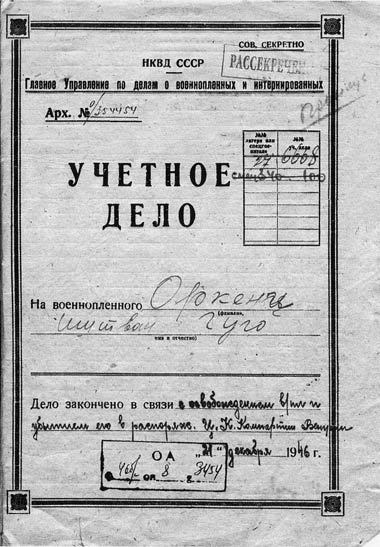 СОВ. СЕКРЕТНО
РАССЕКРЕЧЕНО
НКВД СССР
Главное Управление по делам о военнопленных и интернированных
Арх. № 01/354454
№№ лагеря или спецгоспиталя
№№ уч. дела
27
0008
340
100
УЧЕТНОЕ
ДЕЛО
На военнопленного Оркень
(фамилия,
Иштван Гуго
имя и отчество)
Дело закончено в связи с освобождением в/пл и
убытием его в распоряж. Ц.К. Компартии Венгрии
"21" декабря 1946 г.
ОА
460/
ОП. 8
3454